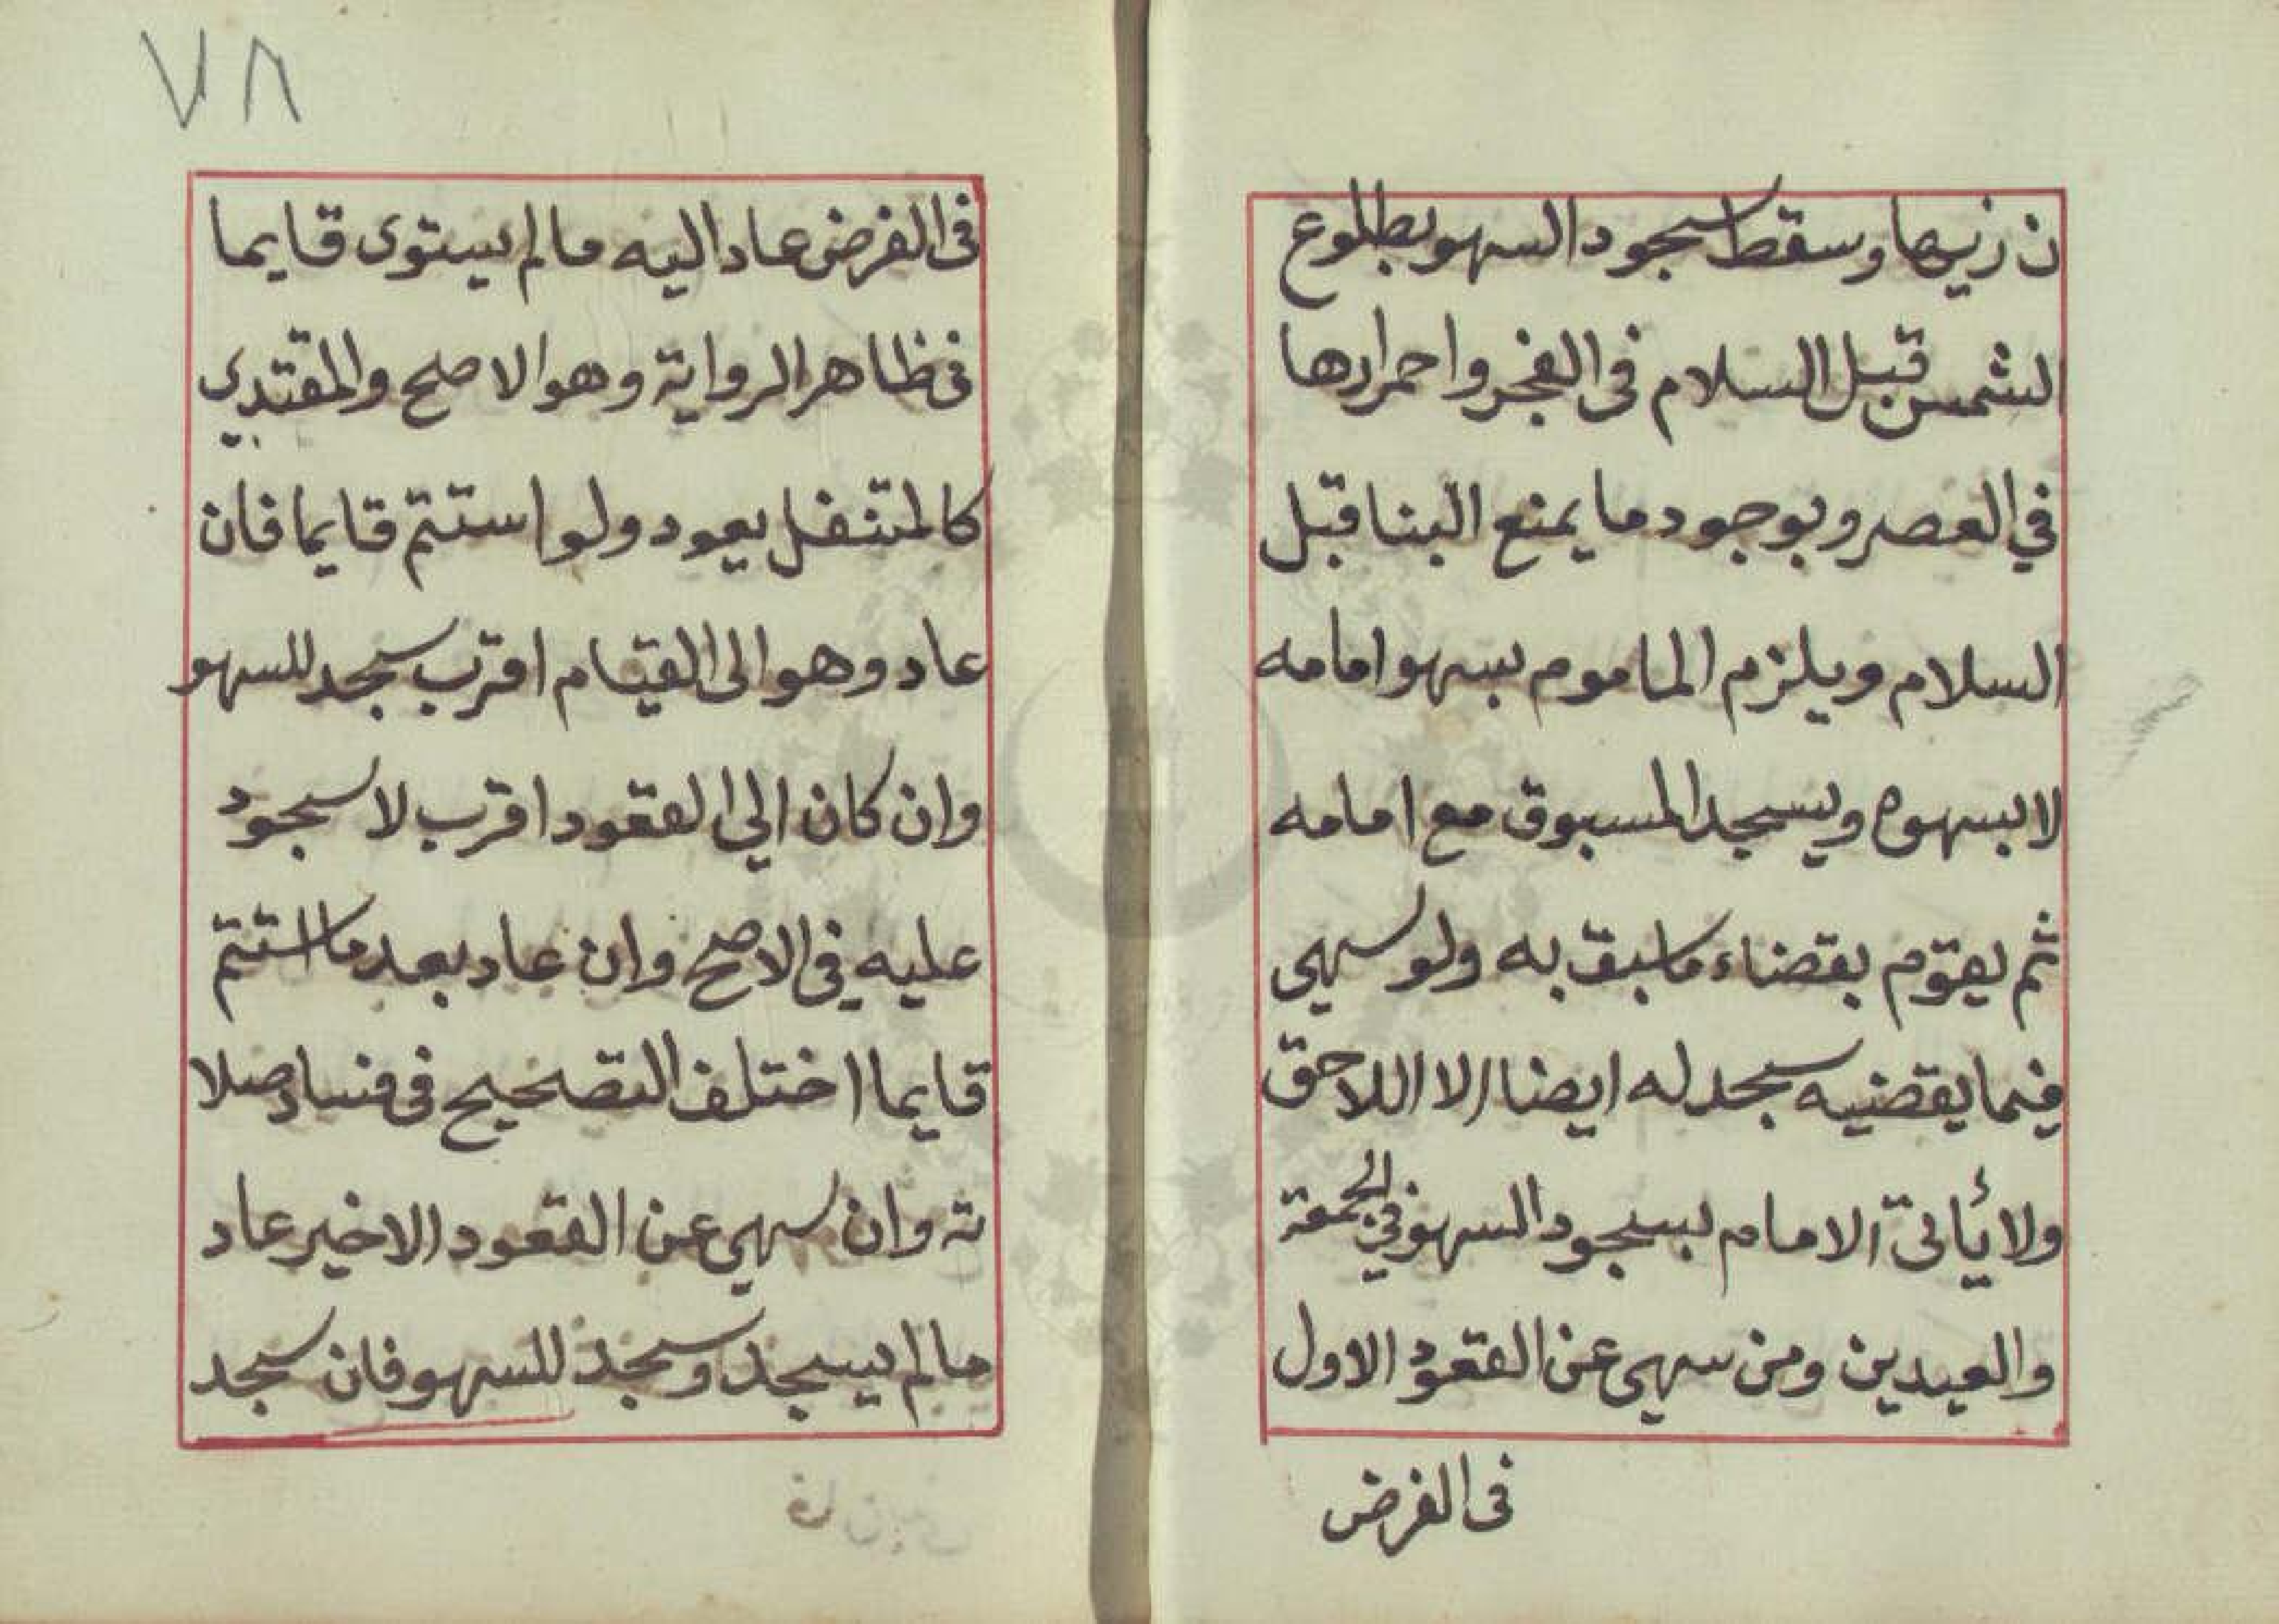 ن زيها وسقط سجود السهو بطلوع
الشمس قبل السلام فى الفجر واحمرارها
في العصر وبوجود ما يمنع البنا قبل
السلام ويلزم الماموم بسهو امامه
لا بسهوه ويسجد المسبوق مع امامه
ثم يقوم بقضاء ما سبق به ولو سهى
فيما يقضيه سجد له ايضا الا اللاحق
ولا يأتى الامام بسجود السهو في الجمعة
والعيدين ومن سهى عن القعود الاول
فى الفرض
٧٨
فى الفرض عاد اليه ما لم يستوى قايما
فى ظاهر الرواية وهو الاصح والمقتدي
كالمتنفل يعود ولو استتم قايما فان
عاد وهو الى القيام اقرب سجد للسهو
وان كان الي القعود اقرب لا سجود
عليه في الاصح وان عاد بعد ما استتم
قايما اختلف التصحيح فى فساد صلا
ته وان سهي عن القعود الاخير عاد
ما لم يسجد وسجد للسهو فان سجد